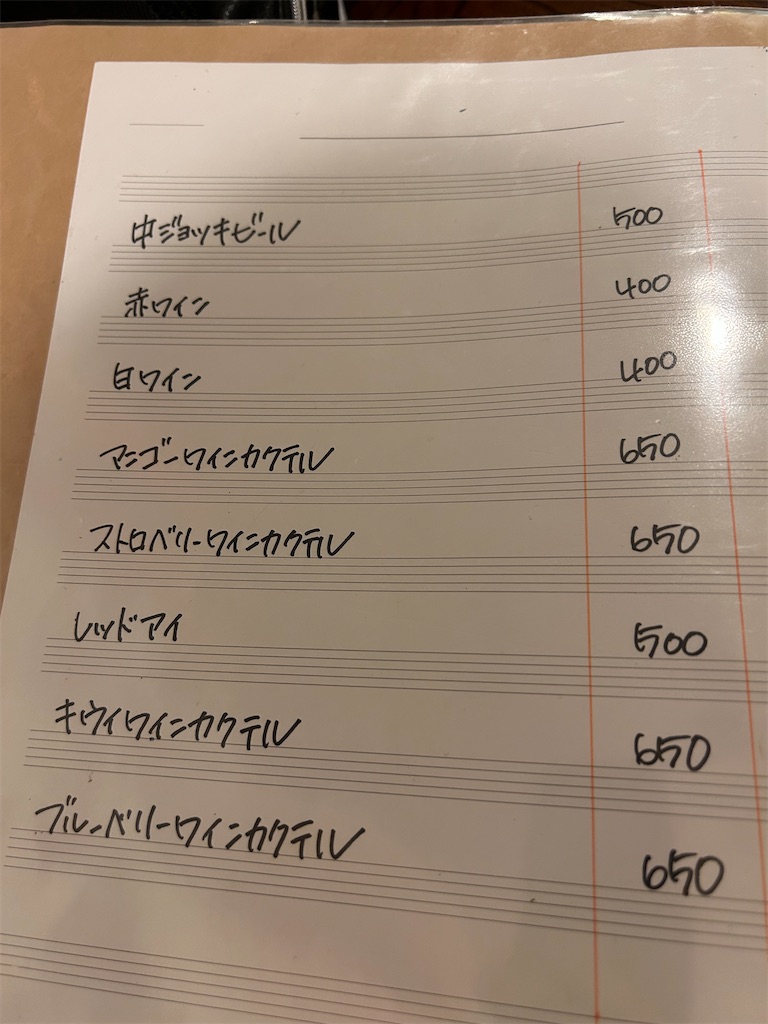 中ジョッキビール 500
赤ワイン 400
白ワイン 400
マンゴーワインカクテル 650
ストロベリーワインカクテル 650
レッドアイ 500
キウイワインカクテル 650
ブルーベリーワインカクテル 650